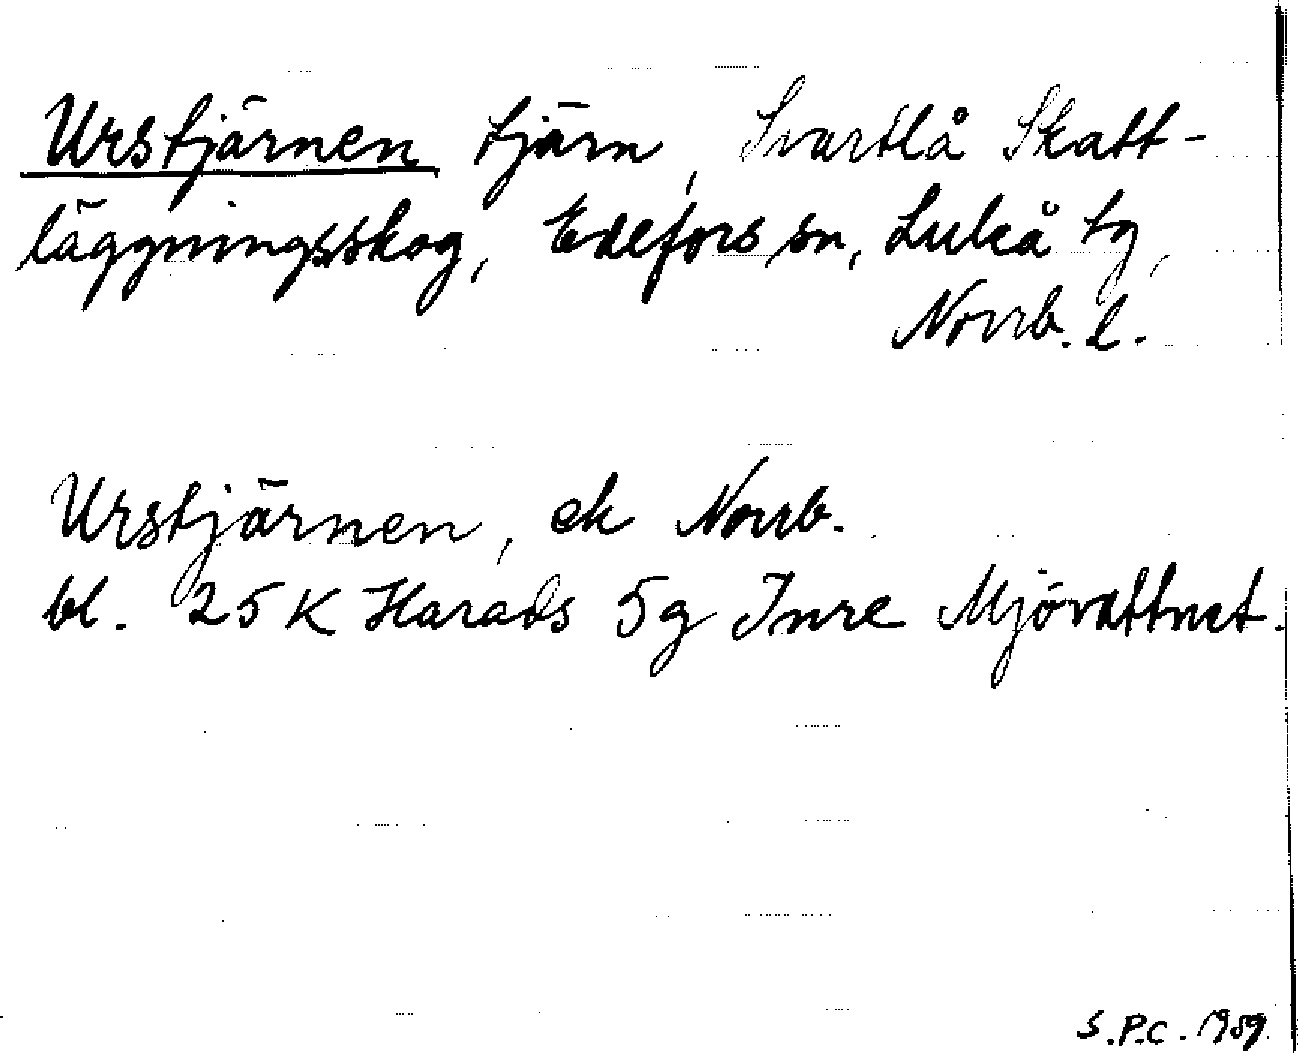 Urstjärnen tjärn, Svartlå Skatt-
läggningsskog, Edefors sn, Luleå tg,
Norrb. l.
Urstjärnen, ek Norrb.
bl. 25 K Harads 5g Inre Mjövattnet.
S.P.C. 1959